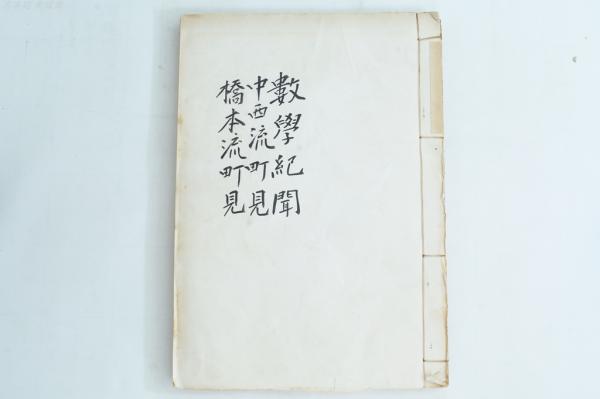 數學紀聞
中西流町見
橋本流町見